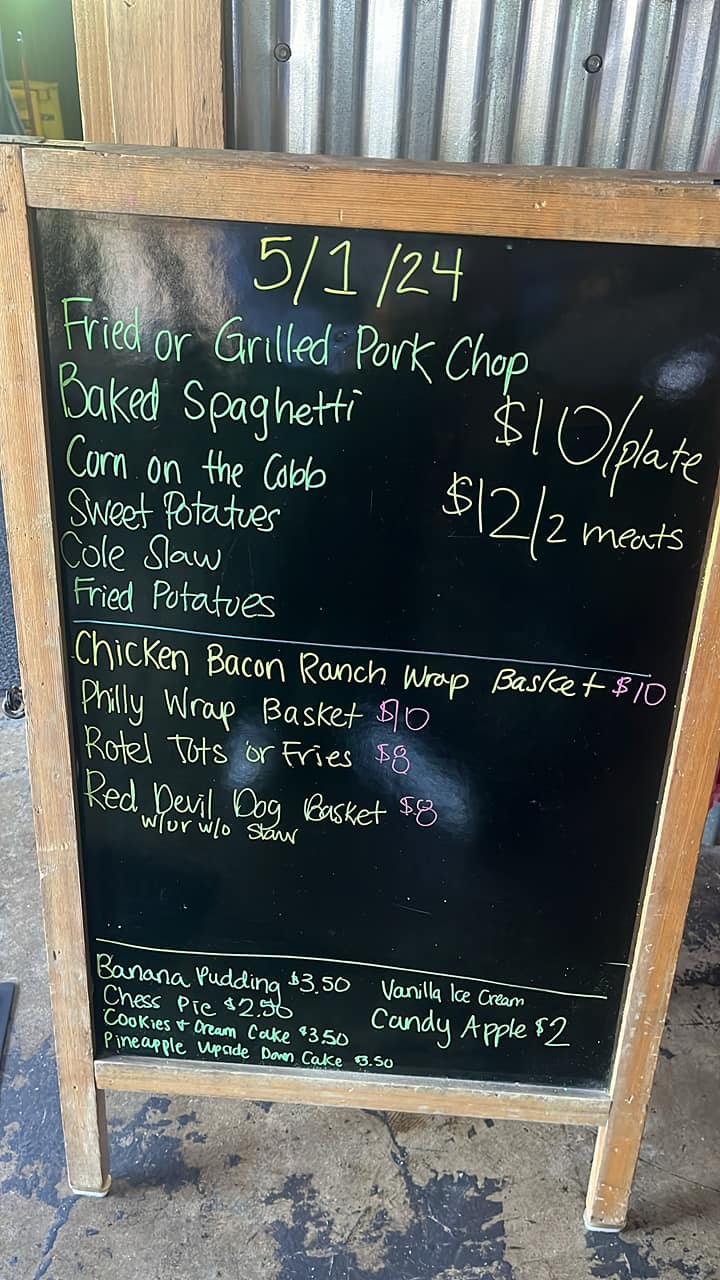 5/1/24
Fried or Grilled Pork Chop
Baked Spaghetti
$10/plate
Corn on the Cobb
$12/2 meats
Sweet Potatoes
Cole Slaw
Fried Potatoes
Chicken Bacon Ranch Wrap Basket $10
Philly Wrap Basket $10
Rotel Tots or Fries $8
Red Devil Dog Basket $8
w/or w/o Slaw
Banana Pudding $3.50
Vanilla Ice Cream
Chess Pie $2.50
Candy Apple $2
Cookies + Cream Cake $3.50
Pineapple Upside Down Cake $3.50